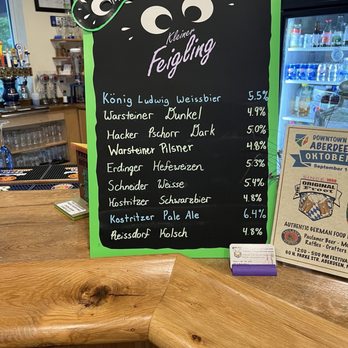 Kleiner
Feigling
König Ludwig Weissbier 5.5%
Warsteiner Dunkel 4.9%
Hacker Pschorr Dark 5.0%
Warsteiner Pilsner 4.8%
Erdinger Hefeweizen 5.3%
Schneder Weisse 5.4%
Kostritzer Schwarzbier 4.8%
Kostritzer Pale Ale 6.4%
Reissdorf Kolsch 4.8%
DOWNTOWN
ABERDEE
OKTOBER
September
ORIGINAL
AUTHENTIC GERMAN FOO
Paulaner Beer - M
Raffles - Crafters
12:00 - 5:00 PM FESTIVAL
ABERDEEN,